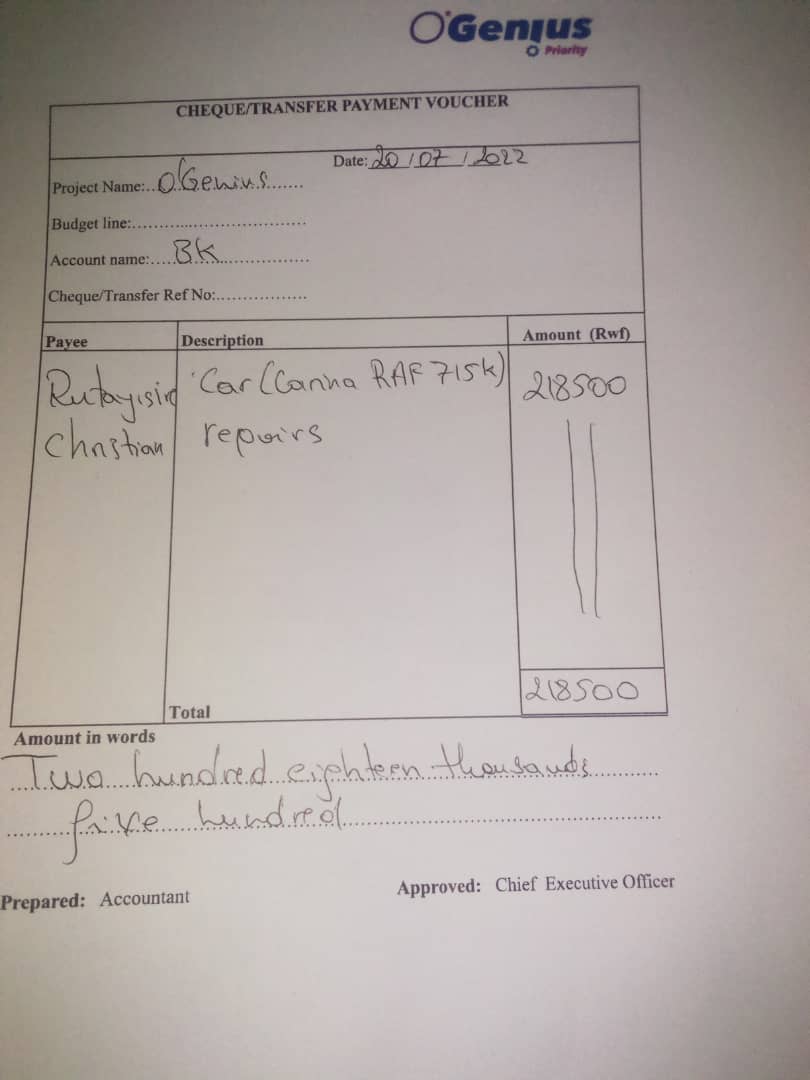 O'Genius
Priority
CHEQUE/TRANSFER PAYMENT VOUCHER
Date: 20/07/2022
Project Name:..O'Genius.......
Budget line:................................
Account name:.....BK.....................
Cheque/Transfer Ref No:................
Payee Description Amount (Rwf)
Rutayisire Car (Carina RAF 715K) 218500
Christian repairs
Total 218500
Amount in words
Two hundred eighteen thousands
five hundred
Prepared: Accountant Approved: Chief Executive Officer